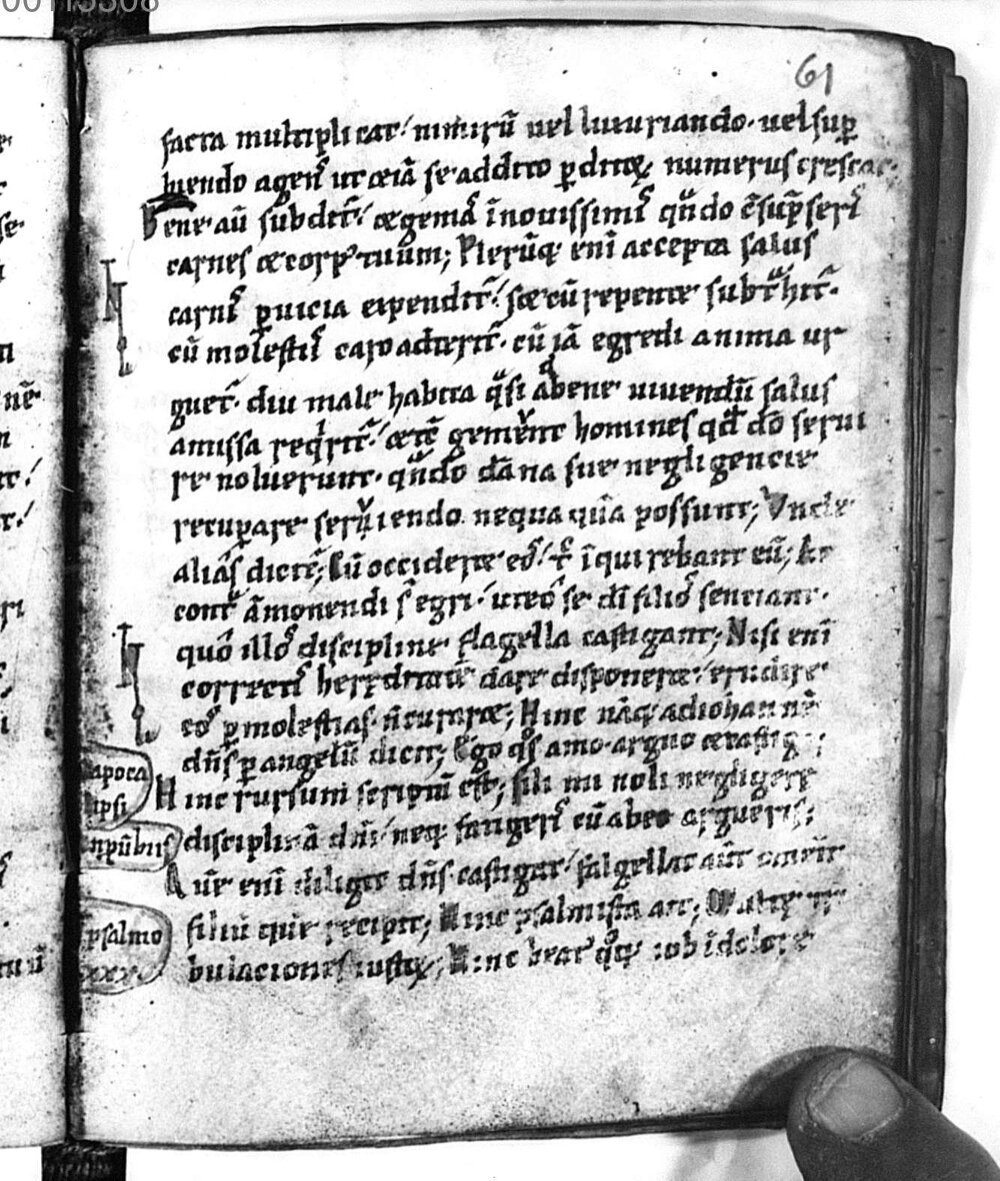 00113308
61
facta multiplicat; nimirũ uel luxuriando. uel sup̱
biendo agenſ̃ ut etiã se addito ꝑditoꝝ numerus crescat.
Bene aũ subdit̃; & gemaſ̃ ĩ nouissimiſ̃ qñdo cõsũpseriſ̃
carnes & corpꝰ tuum; Plerũq; eni accepta salus
carniſ̃ ꝑ uicia expendit̃; sꝫ cũ repente subtͣhit̃.
cũ molestiiſ̃ caro atterit̃. cũ iã egredi anima ur
guet̃. diu male habita qͣsi ad bene uiuendũ salus
amissa reqͥrit̃; & tc̃ gemũt homines qd̃ do seruı
re noluerunt. qñdo dãna sue negligencie
recuꝑare seruiendo nequaquã possunt; Vnde
aliaſ̃ dicit̃; Cũ occideret eoſ̃ / tc̃ ĩquirebant eũ; At
contͣ ãmonendi s̃ egri / ut eo se dĩ filioſ̃ senciant.
quo illoſ̃ discipline flagella castigant; Nisi eni
correctiſ̃ hereditatẽ dare disponeret; erudire
eoſ̃ ꝑ molestias ñ curaret; Hinc nãq; ad iohannẽ
dñs ꝑ angelũ dicit; Ego qͦs amo. arguo & castigo;
Hinc rursum scriptũ est; fili mi noli negligere
disciplinã dñi / neq; fatigeriſ̃ cũ ab eo argueris;
Quẽ eni diligit dñs. castigat / flagellat aũt omnẽ
filiũ quẽ recipit; Hinc psalmista ait; Multe tri
bulaciones iustoꝝ; Hinc beatꝰ qͦq; iob ĩ dolore
apoca
lipsi
ĩ ꝓũbiis
psalmo
xxx